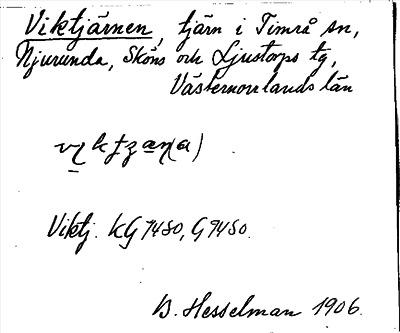 Viktjärnen, tjärn i Timrå sn,
Njurunda, Sköns och Ljustorps tg,
Västernorrlands län
Viktj. KG 7480, G 9480.
B. Hesselman 1906.